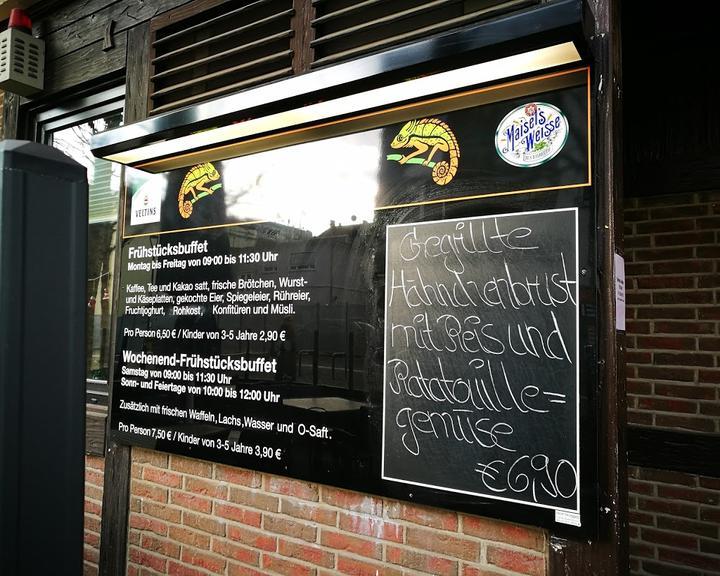 Maisel's
Weisse
VELTINS
Frühstücksbuffet
Montag bis Freitag von 09:00 bis 11:30 Uhr
Kaffee, Tee und Kakao satt, frische Brötchen, Wurst-
und Käseplatten, gekochte Eier, Spiegeleier, Rühreier,
Fruchtjoghurt, Rohkost, Konfitüren und Müsli.
Pro Person 6,50 € / Kinder von 3-5 Jahre 2,90 €
Wochenend-Frühstücksbuffet
Samstag von 09:00 bis 11:30 Uhr
Sonn- und Feiertage von 10:00 bis 12:00 Uhr
Zusätzlich mit frischen Waffeln, Lachs, Wasser und O-Saft.
Pro Person 7,50 € / Kinder von 3-5 Jahre 3,90 €
Gegillte
Hähnchenbrust
mit Reis und
Ratatouille=
gemüse
€6,90